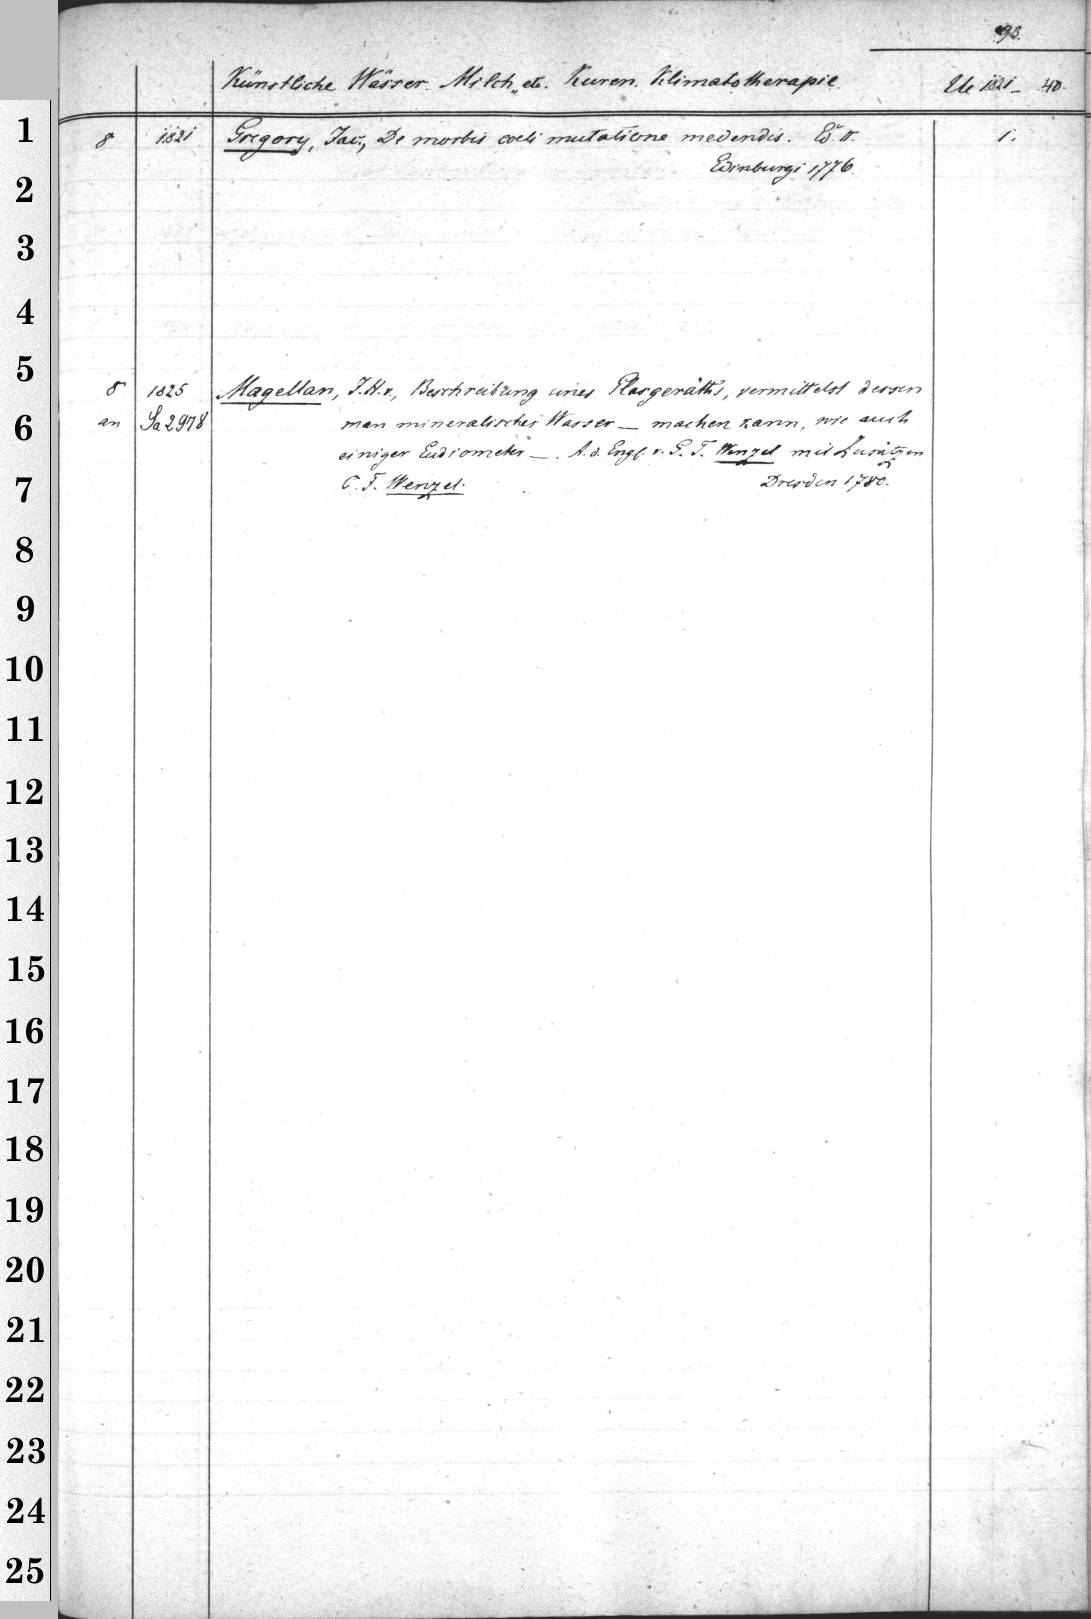 98.
Künstliche Wässer. Milch- etc. Kuren. Klimatotherapie. Ue 1821 – 40.
1 8 1821 Gregory, Jac., De morbis coeli mutatione medendis. Ed. II. 1.
2 Edinburgi 1776.
3
4
5 8 1825 Magellan, J. H. v., Beschreibung eines Glasgeräths, vermittelst dessen
6 an Sa 2978 man mineralisches Wasser — machen kann, wie auch
einiger Eudiometer —. A. d. Engl. v. G. T. Wenzel mit Zusätzen
7 C. F. Wenzel. Dresden 1780.
8
9
10
11
12
13
14
15
16
17
18
19
20
21
22
23
24
25